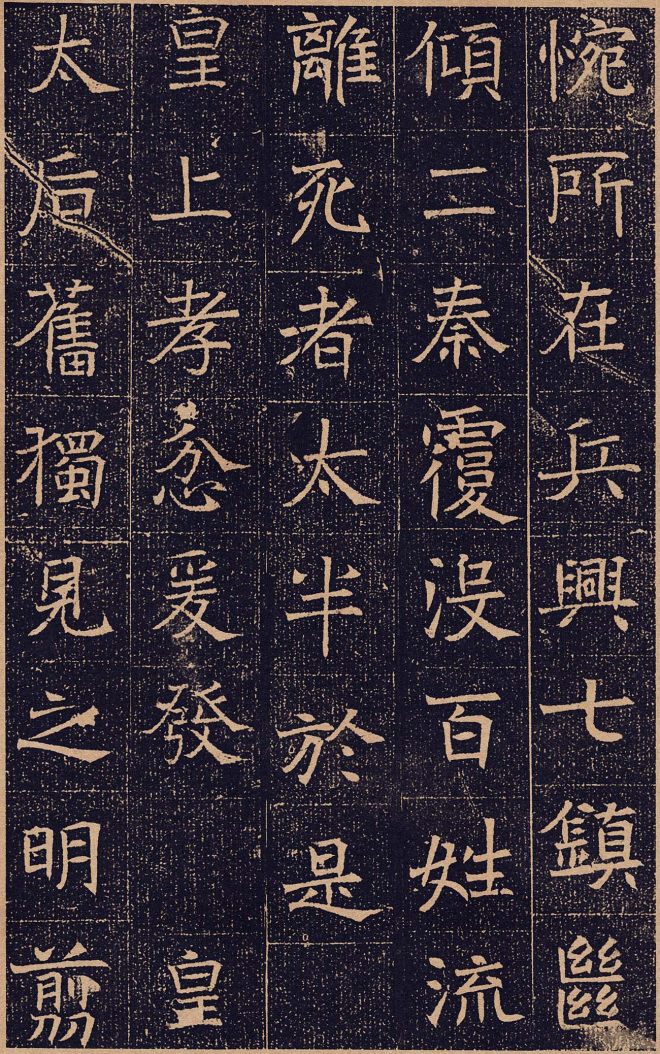 惋所在兵興七鎮㡭
傾二秦覆沒百姓流
離死者太半於是
皇上孝忿爰發　皇
太后舊獨見之明剪